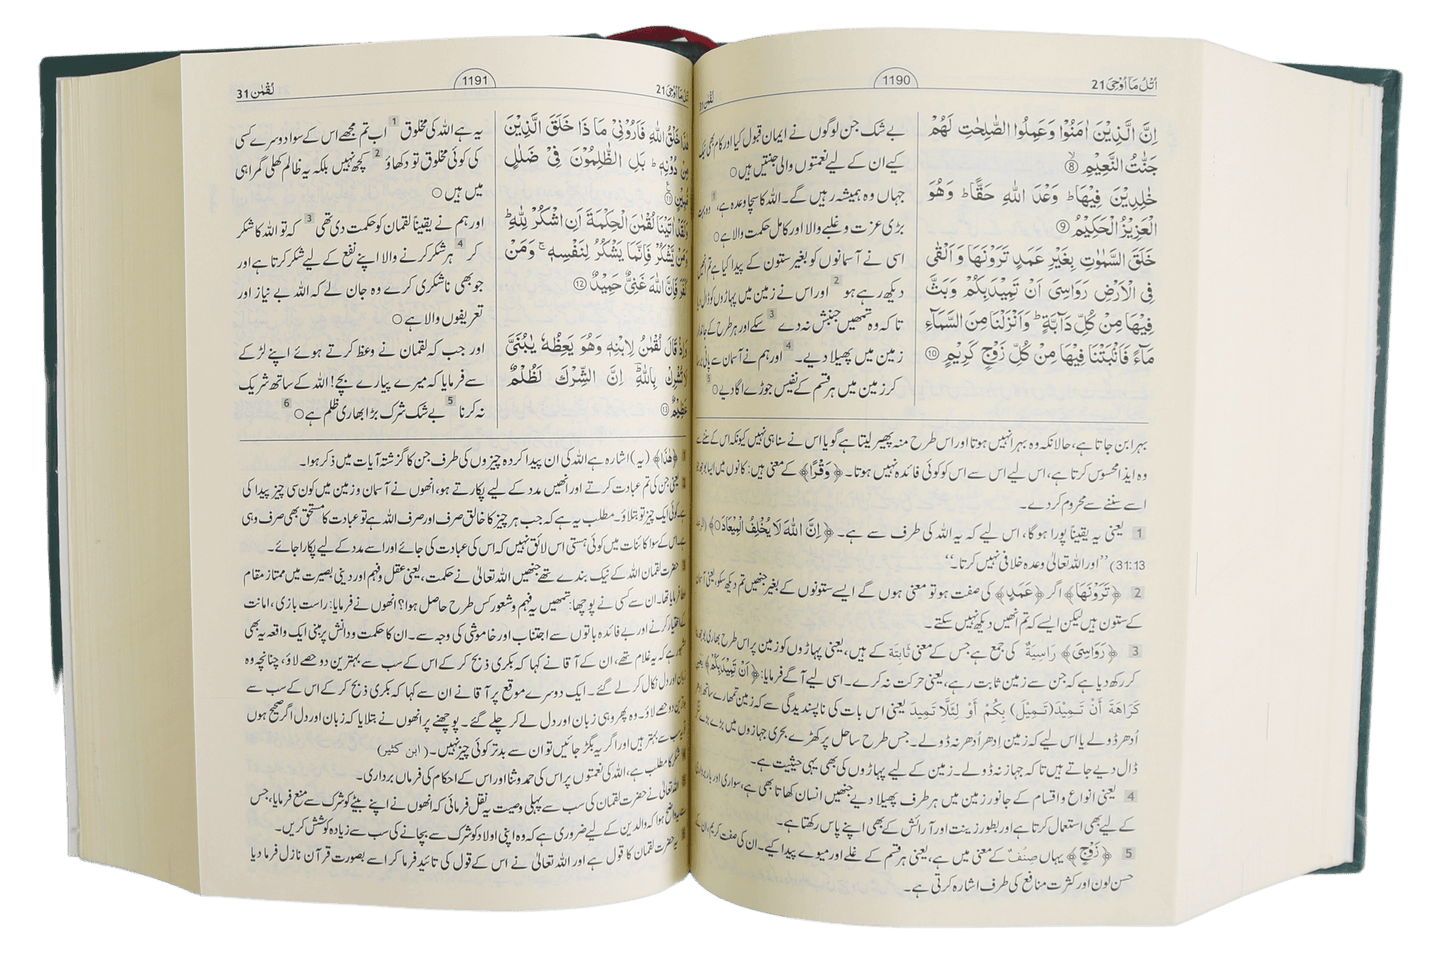 اُتْلُ مَآ اُوْحِیَ 21
1190
لُقْمٰن 31
اِنَّ الَّذِيْنَ اٰمَنُوْا وَعَمِلُوا الصّٰلِحٰتِ لَهُمْ
جَنّٰتُ النَّعِيْمِ ⑧
خٰلِدِيْنَ فِيْهَا ؕ وَعْدَ اللّٰهِ حَقًّا ؕ وَهُوَ
الْعَزِيْزُ الْحَكِيْمُ ⑨
خَلَقَ السَّمٰوٰتِ بِغَيْرِ عَمَدٍ تَرَوْنَهَا وَاَلْقٰى
فِى الْاَرْضِ رَوَاسِىَ اَنْ تَمِيْدَ بِكُمْ وَبَثَّ
فِيْهَا مِنْ كُلِّ دَآبَّةٍ ؕ وَاَنْزَلْنَا مِنَ السَّمَآءِ
مَآءً فَاَنْۢبَتْنَا فِيْهَا مِنْ كُلِّ زَوْجٍ كَرِيْمٍ ⑩
بے شک جن لوگوں نے ایمان قبول کیا اور کام بھی نیک
کیے ان کے لیے نعمتوں والی جنتیں ہیں ○
جہاں وہ ہمیشہ رہیں گے۔ اللہ کا سچا وعدہ ہے، 1 وہ بہت
بڑی عزت و غلبے والا اور کامل حکمت والا ہے ○
اسی نے آسمانوں کو بغیر ستون کے پیدا کیا ہے تم انھیں
دیکھ رہے ہو 2 اور اس نے زمین میں پہاڑوں کو ڈال دیا
تاکہ وہ تمھیں جنبش نہ دے 3 سکے اور ہر طرح کے جاندار
زمین میں پھیلا دیے۔ 4 اور ہم نے آسمان سے پانی برسا
کر زمین میں ہر قسم کے نفیس جوڑے اگا دیے ○ 5
بہرا بن جاتا ہے، حالانکہ وہ بہرا نہیں ہوتا اور اس طرح منہ پھیر لیتا ہے گویا اس نے سنا ہی نہیں کیونکہ اس کے سننے سے
وہ ایذا محسوس کرتا ہے، اس لیے اس سے اس کو کوئی فائدہ نہیں ہوتا۔ ﴿وَقْرًا﴾ کے معنی ہیں: کانوں میں ایسا بوجھ جو
اسے سننے سے محروم کر دے۔
1 یعنی یہ یقیناً پورا ہوگا، اس لیے کہ یہ اللہ کی طرف سے ہے۔ ﴿اِنَّ اللّٰهَ لَا يُخْلِفُ الْمِيْعَادَ ○﴾ (الرعد
31:13) ’’اور اللہ تعالیٰ وعدہ خلافی نہیں کرتا۔‘‘
2 ﴿تَرَوْنَهَا﴾ اگر ﴿عَمَدٍ﴾ کی صفت ہو تو معنی ہوں گے ایسے ستونوں کے بغیر جنھیں تم دیکھ سکو، یعنی آسمان
کے ستون ہیں لیکن ایسے کہ تم انھیں دیکھ نہیں سکتے۔
3 ﴿رَوَاسِىَ﴾ رَاسِيَةٌ کی جمع ہے جس کے معنی ثَابِتَة کے ہیں، یعنی پہاڑوں کو زمین پر اس طرح بھاری بوجھ بنا
کر رکھ دیا ہے کہ جن سے زمین ثابت رہے، یعنی حرکت نہ کرے۔ اسی لیے آگے فرمایا: ﴿اَنْ تَمِيْدَ بِكُمْ﴾ یعنی
كَرَاهَةَ أَنْ تَمِيْدَ (تَمِيْلَ) بِكُمْ أَوْ لِئَلَّا تَمِيْدَ یعنی اس بات کی ناپسندیدگی سے کہ زمین تمھارے ساتھ ادھر
ادھر ڈولے یا اس لیے کہ زمین ادھر ادھر نہ ڈولے۔ جس طرح ساحل پر کھڑے بحری جہازوں میں بڑے بڑے لنگر
ڈال دیے جاتے ہیں تاکہ جہاز نہ ڈولے۔ زمین کے لیے پہاڑوں کی بھی یہی حیثیت ہے۔
4 یعنی انواع و اقسام کے جانور زمین میں ہر طرف پھیلا دیے جنھیں انسان کھاتا بھی ہے، سواری اور بار برداری
کے لیے بھی استعمال کرتا ہے اور بطور زینت اور آرائش کے بھی اپنے پاس رکھتا ہے۔
5 ﴿زَوْجٍ﴾ یہاں صِنْفٌ کے معنی میں ہے، یعنی ہر قسم کے غلے اور میوے پیدا کیے۔ ان کی صفت کریم، ان کے
حسن لون اور کثرت منافع کی طرف اشارہ کرتی ہے۔
اُتْلُ مَآ اُوْحِیَ 21
1191
لُقْمٰن 31
هٰذَا خَلْقُ اللّٰهِ فَاَرُوْنِىْ مَا ذَا خَلَقَ الَّذِيْنَ
مِنْ دُوْنِهٖ ؕ بَلِ الظّٰلِمُوْنَ فِىْ ضَلٰلٍ
مُّبِيْنٍ ⑪
وَلَقَدْ اٰتَيْنَا لُقْمٰنَ الْحِكْمَةَ اَنِ اشْكُرْ لِلّٰهِ ؕ
وَمَنْ يَّشْكُرْ فَاِنَّمَا يَشْكُرُ لِنَفْسِهٖ ۚ وَمَنْ
كَفَرَ فَاِنَّ اللّٰهَ غَنِىٌّ حَمِيْدٌ ⑫
وَاِذْ قَالَ لُقْمٰنُ لِابْنِهٖ وَهُوَ يَعِظُهٗ يٰبُنَىَّ
لَا تُشْرِكْ بِاللّٰهِ ؔ اِنَّ الشِّرْكَ لَظُلْمٌ
عَظِيْمٌ ⑬
یہ ہے اللہ کی مخلوق 1 اب تم مجھے اس کے سوا دوسرے کسی
کی کوئی مخلوق تو دکھاؤ 2 کچھ نہیں بلکہ یہ ظالم کھلی گمراہی
میں ہیں ○
اور ہم نے یقیناً لقمان کو حکمت دی تھی 3 کہ تو اللہ کا شکر
کر 4 ہر شکر کرنے والا اپنے نفع کے لیے شکر کرتا ہے اور
جو بھی ناشکری کرے وہ جان لے کہ اللہ بے نیاز اور
تعریفوں والا ہے ○
اور جب کہ لقمان نے وعظ کرتے ہوئے اپنے لڑکے
سے فرمایا کہ میرے پیارے بچے! اللہ کے ساتھ شریک
نہ کرنا 5 بے شک شرک بڑا بھاری ظلم ہے ○ 6
1 ﴿هٰذَا﴾ (یہ) اشارہ ہے اللہ کی ان پیدا کردہ چیزوں کی طرف جن کا گزشتہ آیات میں ذکر ہوا۔
2 یعنی جن کی تم عبادت کرتے اور انھیں مدد کے لیے پکارتے ہو، انھوں نے آسمان و زمین میں کون سی چیز پیدا کی
ہے۔ کوئی ایک چیز تو بتلاؤ۔ مطلب یہ ہے کہ جب ہر چیز کا خالق صرف اور صرف اللہ ہے تو عبادت کا مستحق بھی صرف وہی
ہے۔ اس کے سوا کائنات میں کوئی ہستی اس لائق نہیں کہ اس کی عبادت کی جائے اور اسے مدد کے لیے پکارا جائے۔
3 حضرت لقمان اللہ کے نیک بندے تھے جنھیں اللہ تعالیٰ نے حکمت، یعنی عقل و فہم اور دینی بصیرت میں ممتاز مقام
عطا فرمایا تھا۔ ان سے کسی نے پوچھا: تمھیں یہ فہم و شعور کس طرح حاصل ہوا؟ انھوں نے فرمایا: راست بازی، امانت
کے اختیار کرنے اور بے فائدہ باتوں سے اجتناب اور خاموشی کی وجہ سے۔ ان کا حکمت و دانش پر مبنی ایک واقعہ یہ بھی
ہے کہ یہ غلام تھے، ان کے آقا نے کہا کہ بکری ذبح کر کے اس کے سب سے بہترین دو حصے لاؤ، چنانچہ وہ
زبان اور دل نکال کر لے گئے۔ ایک دوسرے موقع پر آقا نے ان سے کہا کہ بکری ذبح کر کے اس کے سب سے
بدترین دو حصے لاؤ۔ وہ پھر وہی زبان اور دل لے کر چلے گئے۔ پوچھنے پر انھوں نے بتلایا کہ زبان اور دل اگر صحیح ہوں
تو یہ سب سے بہتر ہیں اور اگر یہ بگڑ جائیں تو ان سے بدتر کوئی چیز نہیں۔ (ابن کثیر)
شکر کا مطلب ہے، اللہ کی نعمتوں پر اس کی حمد و ثنا اور اس کے احکام کی فرماں برداری۔
اللہ تعالیٰ نے حضرت لقمان کی سب سے پہلی وصیت یہ نقل فرمائی کہ انھوں نے اپنے بیٹے کو شرک سے منع فرمایا، جس
سے یہ واضح ہوا کہ والدین کے لیے ضروری ہے کہ وہ اپنی اولاد کو شرک سے بچانے کی سب سے زیادہ کوشش کریں۔
یہ حضرت لقمان کا قول ہے اور اللہ تعالیٰ نے اس کے قول کی تائید فرما کر اسے بصورت قرآن نازل فرما دیا